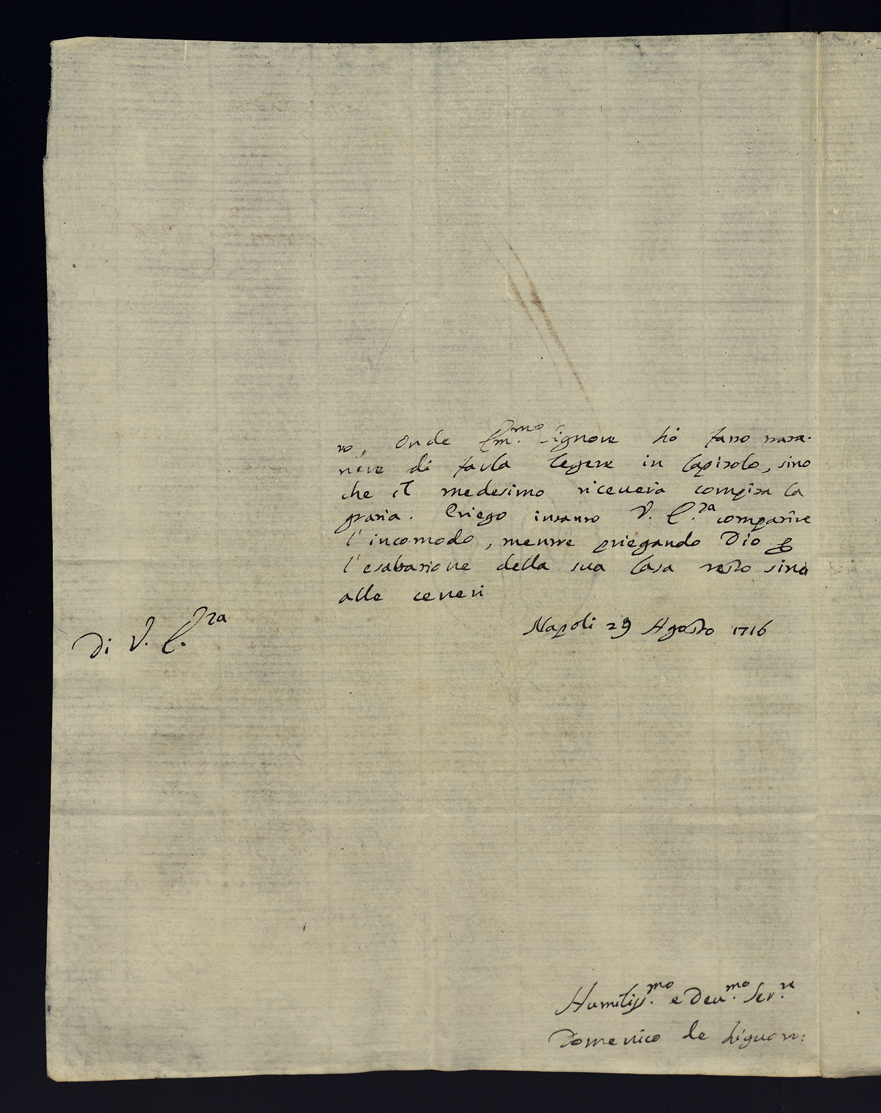 ro, Onde Em.mo Signore hò fatto trata-
nere di farla legere in Capitolo, sino
che il medesimo riceverà compita la
gratia. Priego intanto V. E.za compatire
l'incomodo, mentre priegando Dio per
l'esaltatione della sua Casa resto sino
alle ceneri
Napoli 29 Agosto 1716
Di V. E.za
Humiliss.mo e Deu.mo Ser.re
Domenico de Liguori